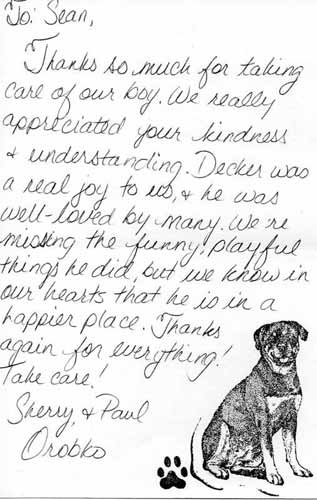 To: Sean,
Thanks so much for taking
care of our boy. We really
appreciated your kindness
& understanding. Decker was
a real joy to us, & he was
well-loved by many. We're
missing the funny, playful
things he did, but we know in
our hearts that he is in a
happier place. Thanks
again for everything!
Take care!
Sherry & Paul
Orobko